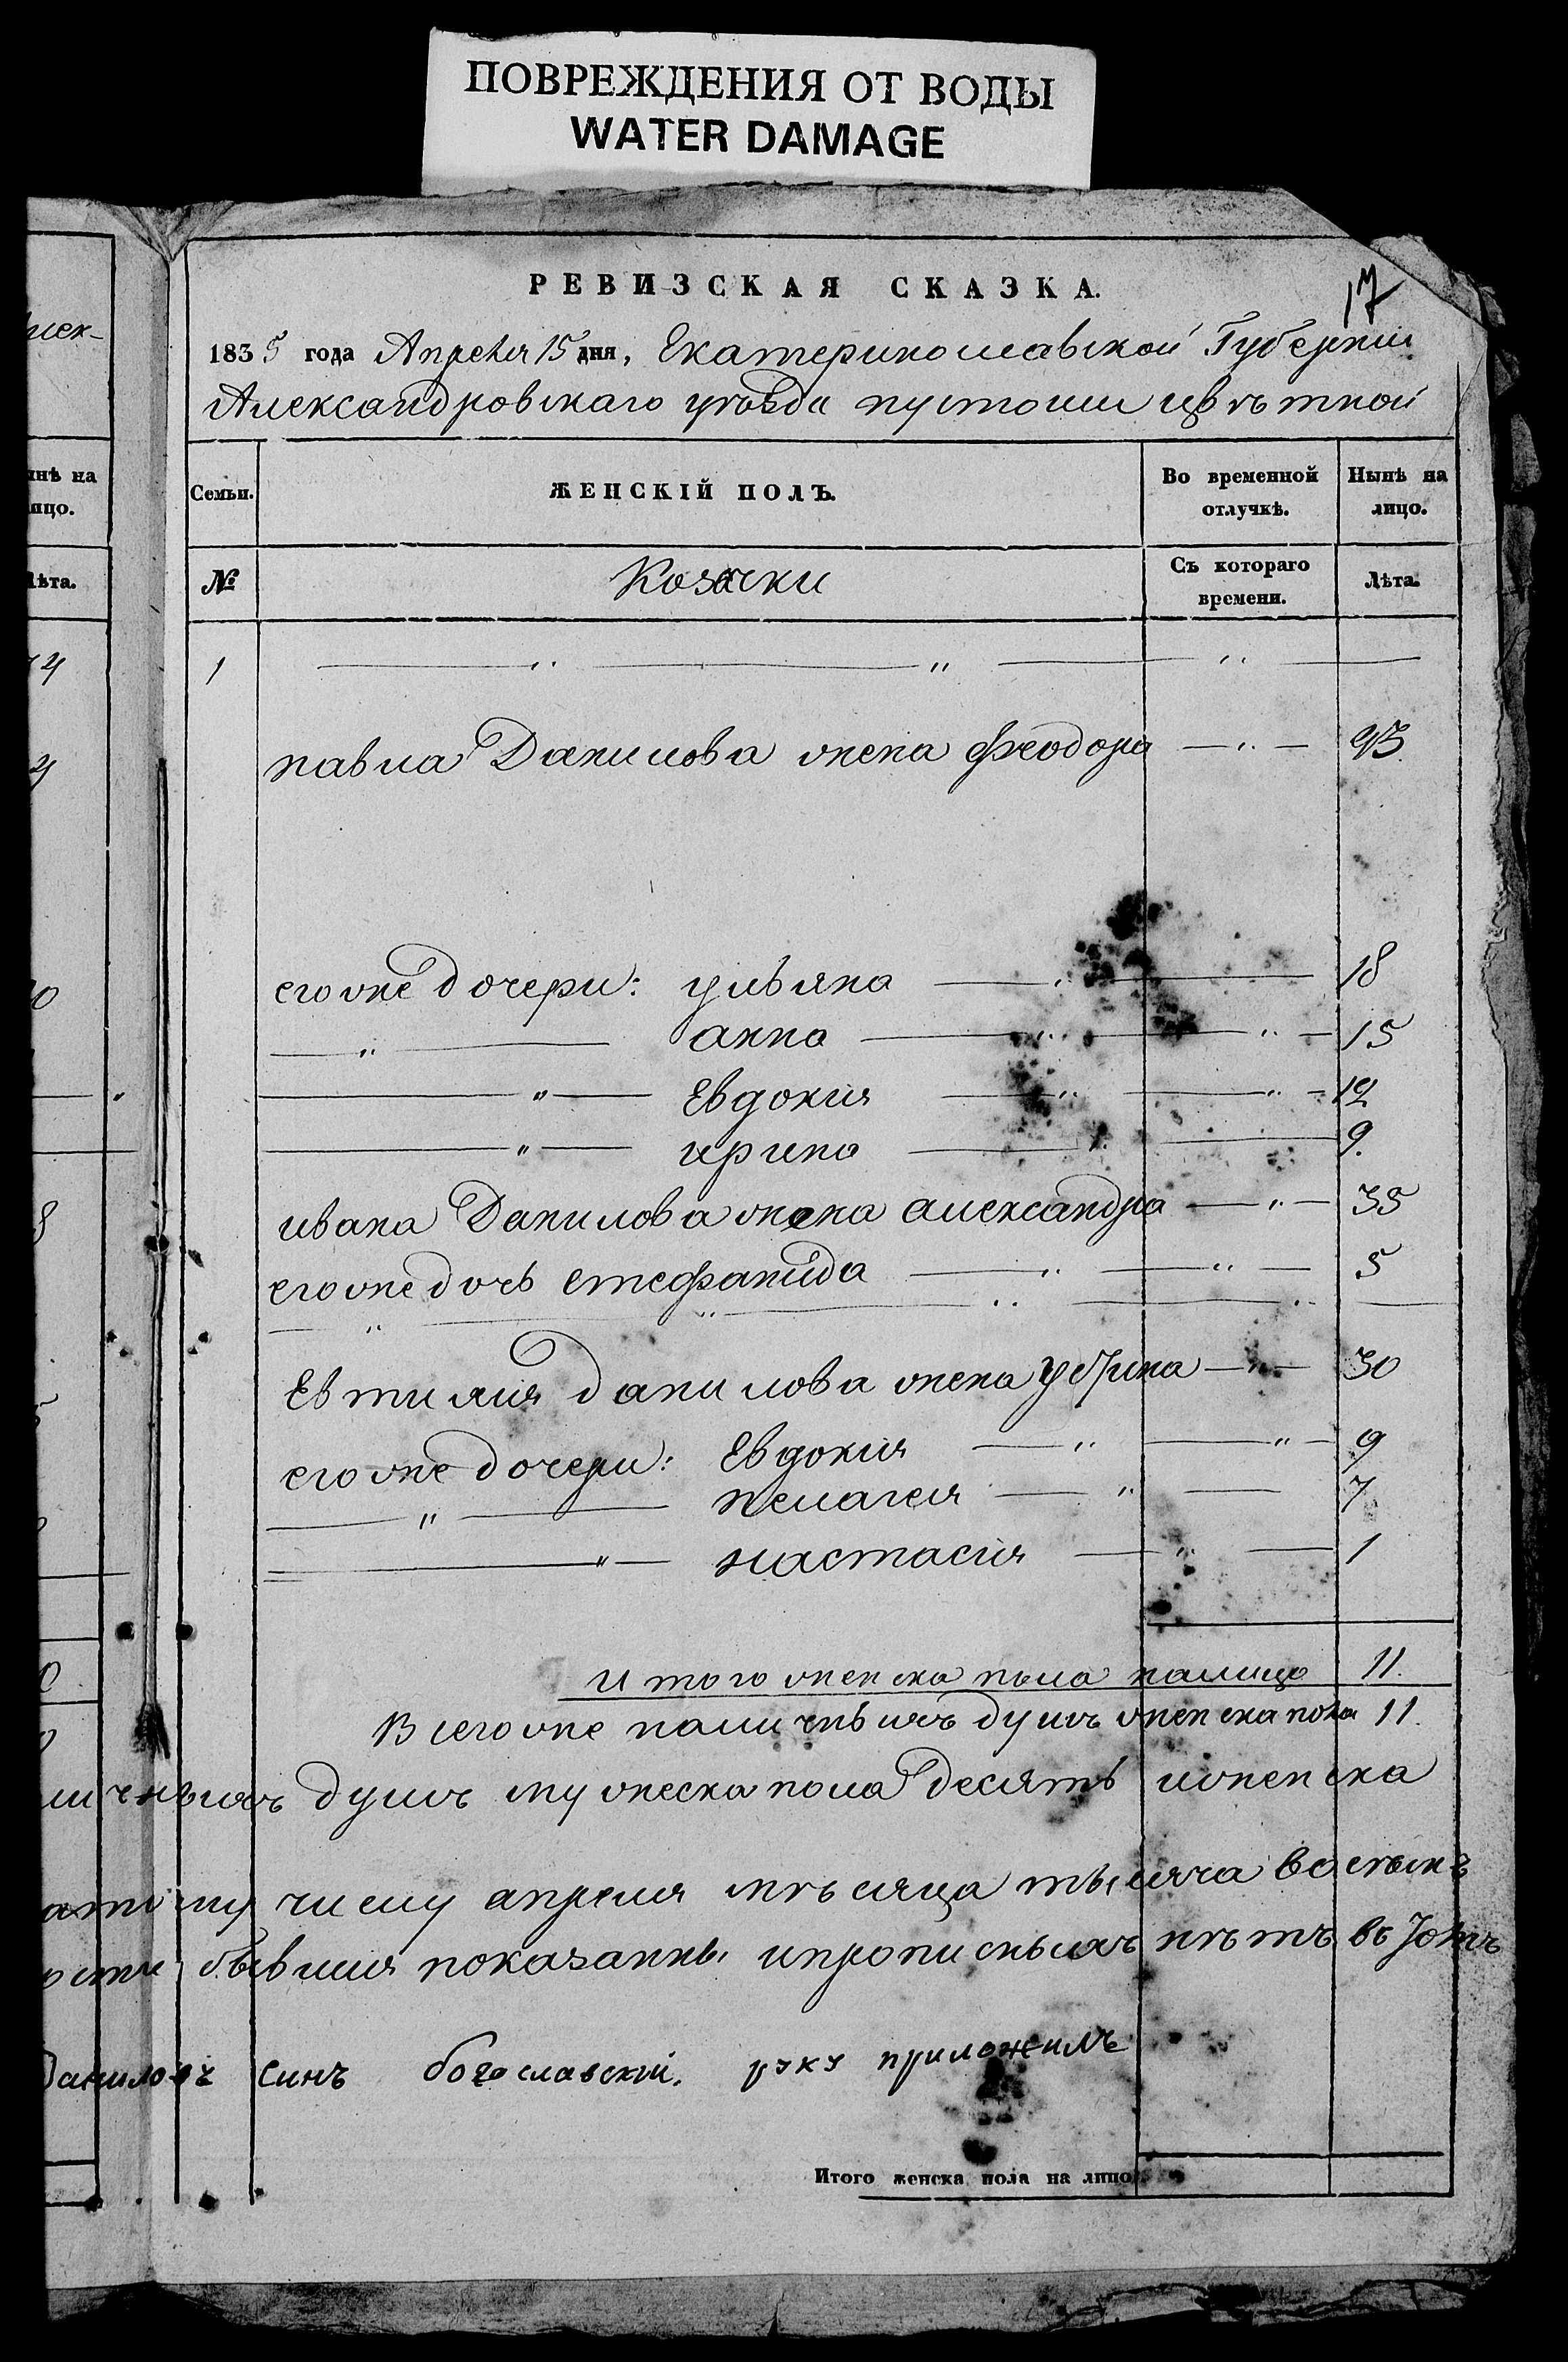 ПОВРЕЖДЕНИЯ ОТ ВОДЫ
WATER DAMAGE
РЕВИЗСКАЯ СКАЗКА.
17
1835 года Апреля 15 дня, Екатеринославской Губернии
Александровскаго уѣзда пустоши цвѣтной
Семьи. ЖЕНСКІЙ ПОЛЪ. Во временной отлучкѣ. Нынѣ на лицо.
№ Козачки Съ котораго времени. Лѣта.
1
павла Данилова жена феодора 43
егоже дочери: ульяна 18
анна 15
Евдокия 12
ирина 9.
ивана Данилова жена александра 35
егоже дочь стефанида 5
Евтимия данилова жена 30
егоже дочери: Евдокия 9
пелагея 7
настасия 1
итого женска пола налицо 11.
Всегоже наличныхъ душъ женска пола 11.
душъ мужеска пола десять иженска
числу апреля мѣсяца тысяча
бывшия показанны ипрописныхъ нѣтъ въ
синъ богославский. руку приложилъ
Итого женска пола на лицо